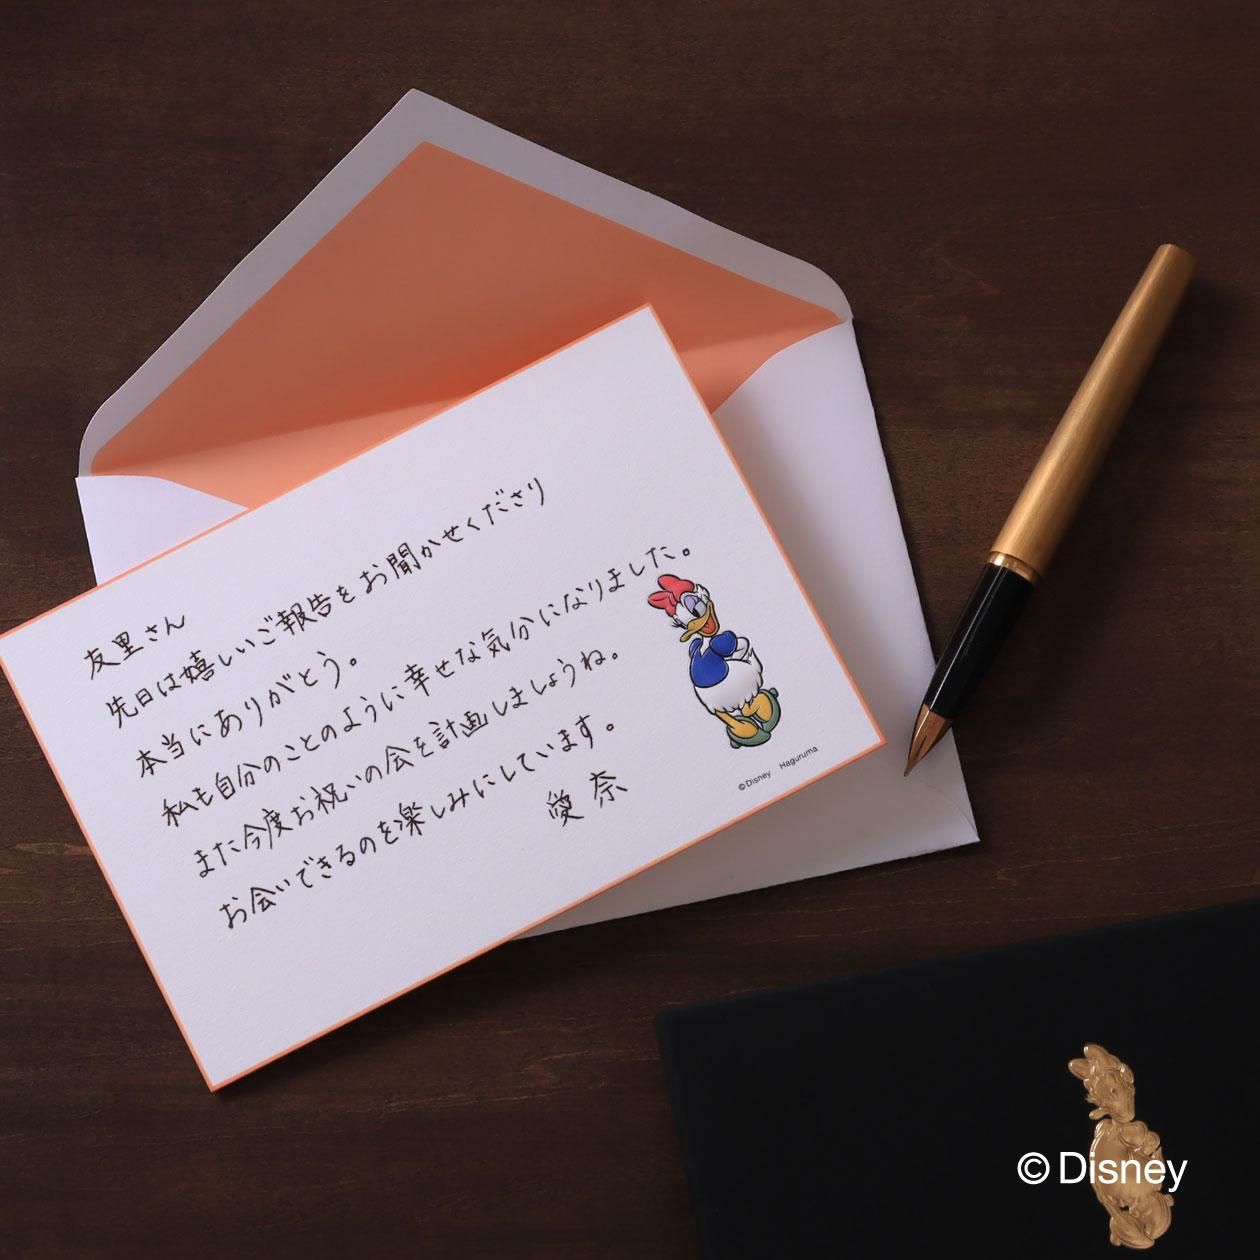 友里さん
先日は嬉しいご報告をお聞かせくださり
本当にありがとう。
私も自分のことのように幸せな気分になりました。
また今度お祝いの会を計画しましょうね。
お会いできるのを楽しみにしています。
愛奈
©Disney Haguruma
©Disney